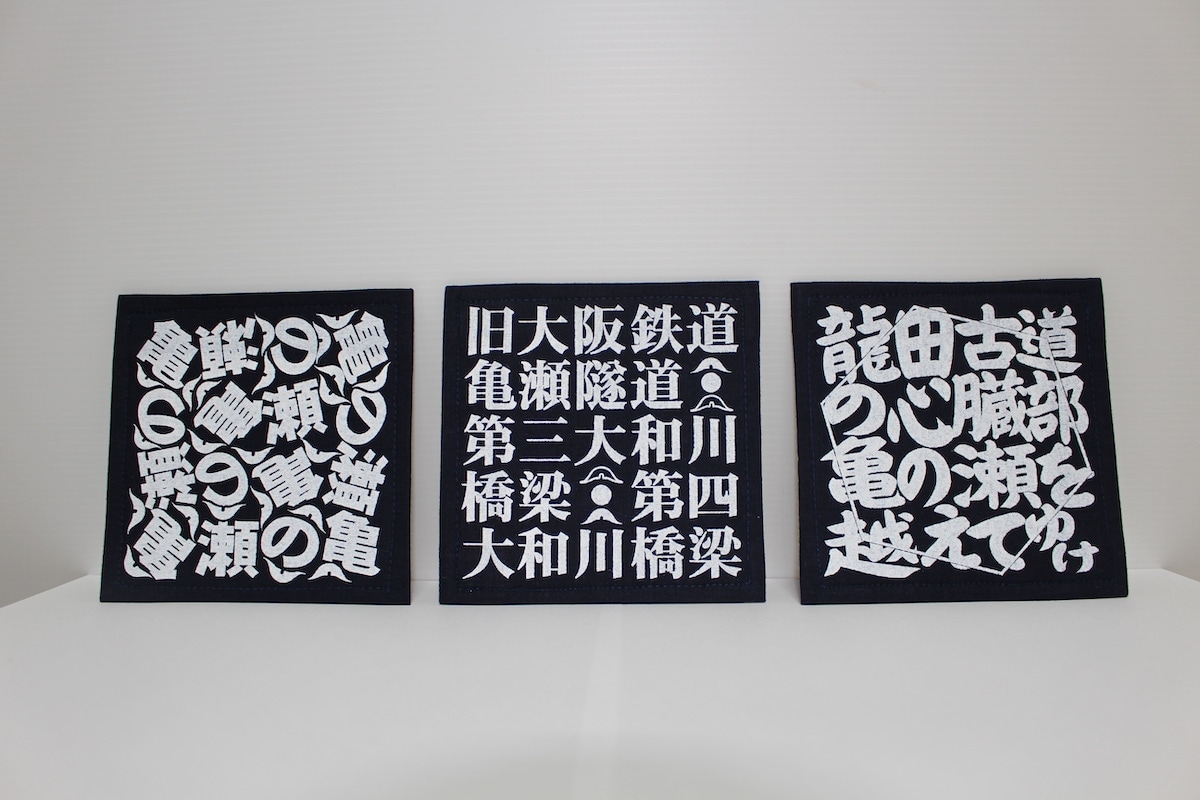 亀瀬の亀
の亀瀬の
瀬の亀瀬
亀瀬の亀
旧大阪鉄道
亀瀬隧道
第三大和川
橋梁 第四
大和川橋梁
龍田古道
の心臓部
亀の瀬を
越えてゆけ